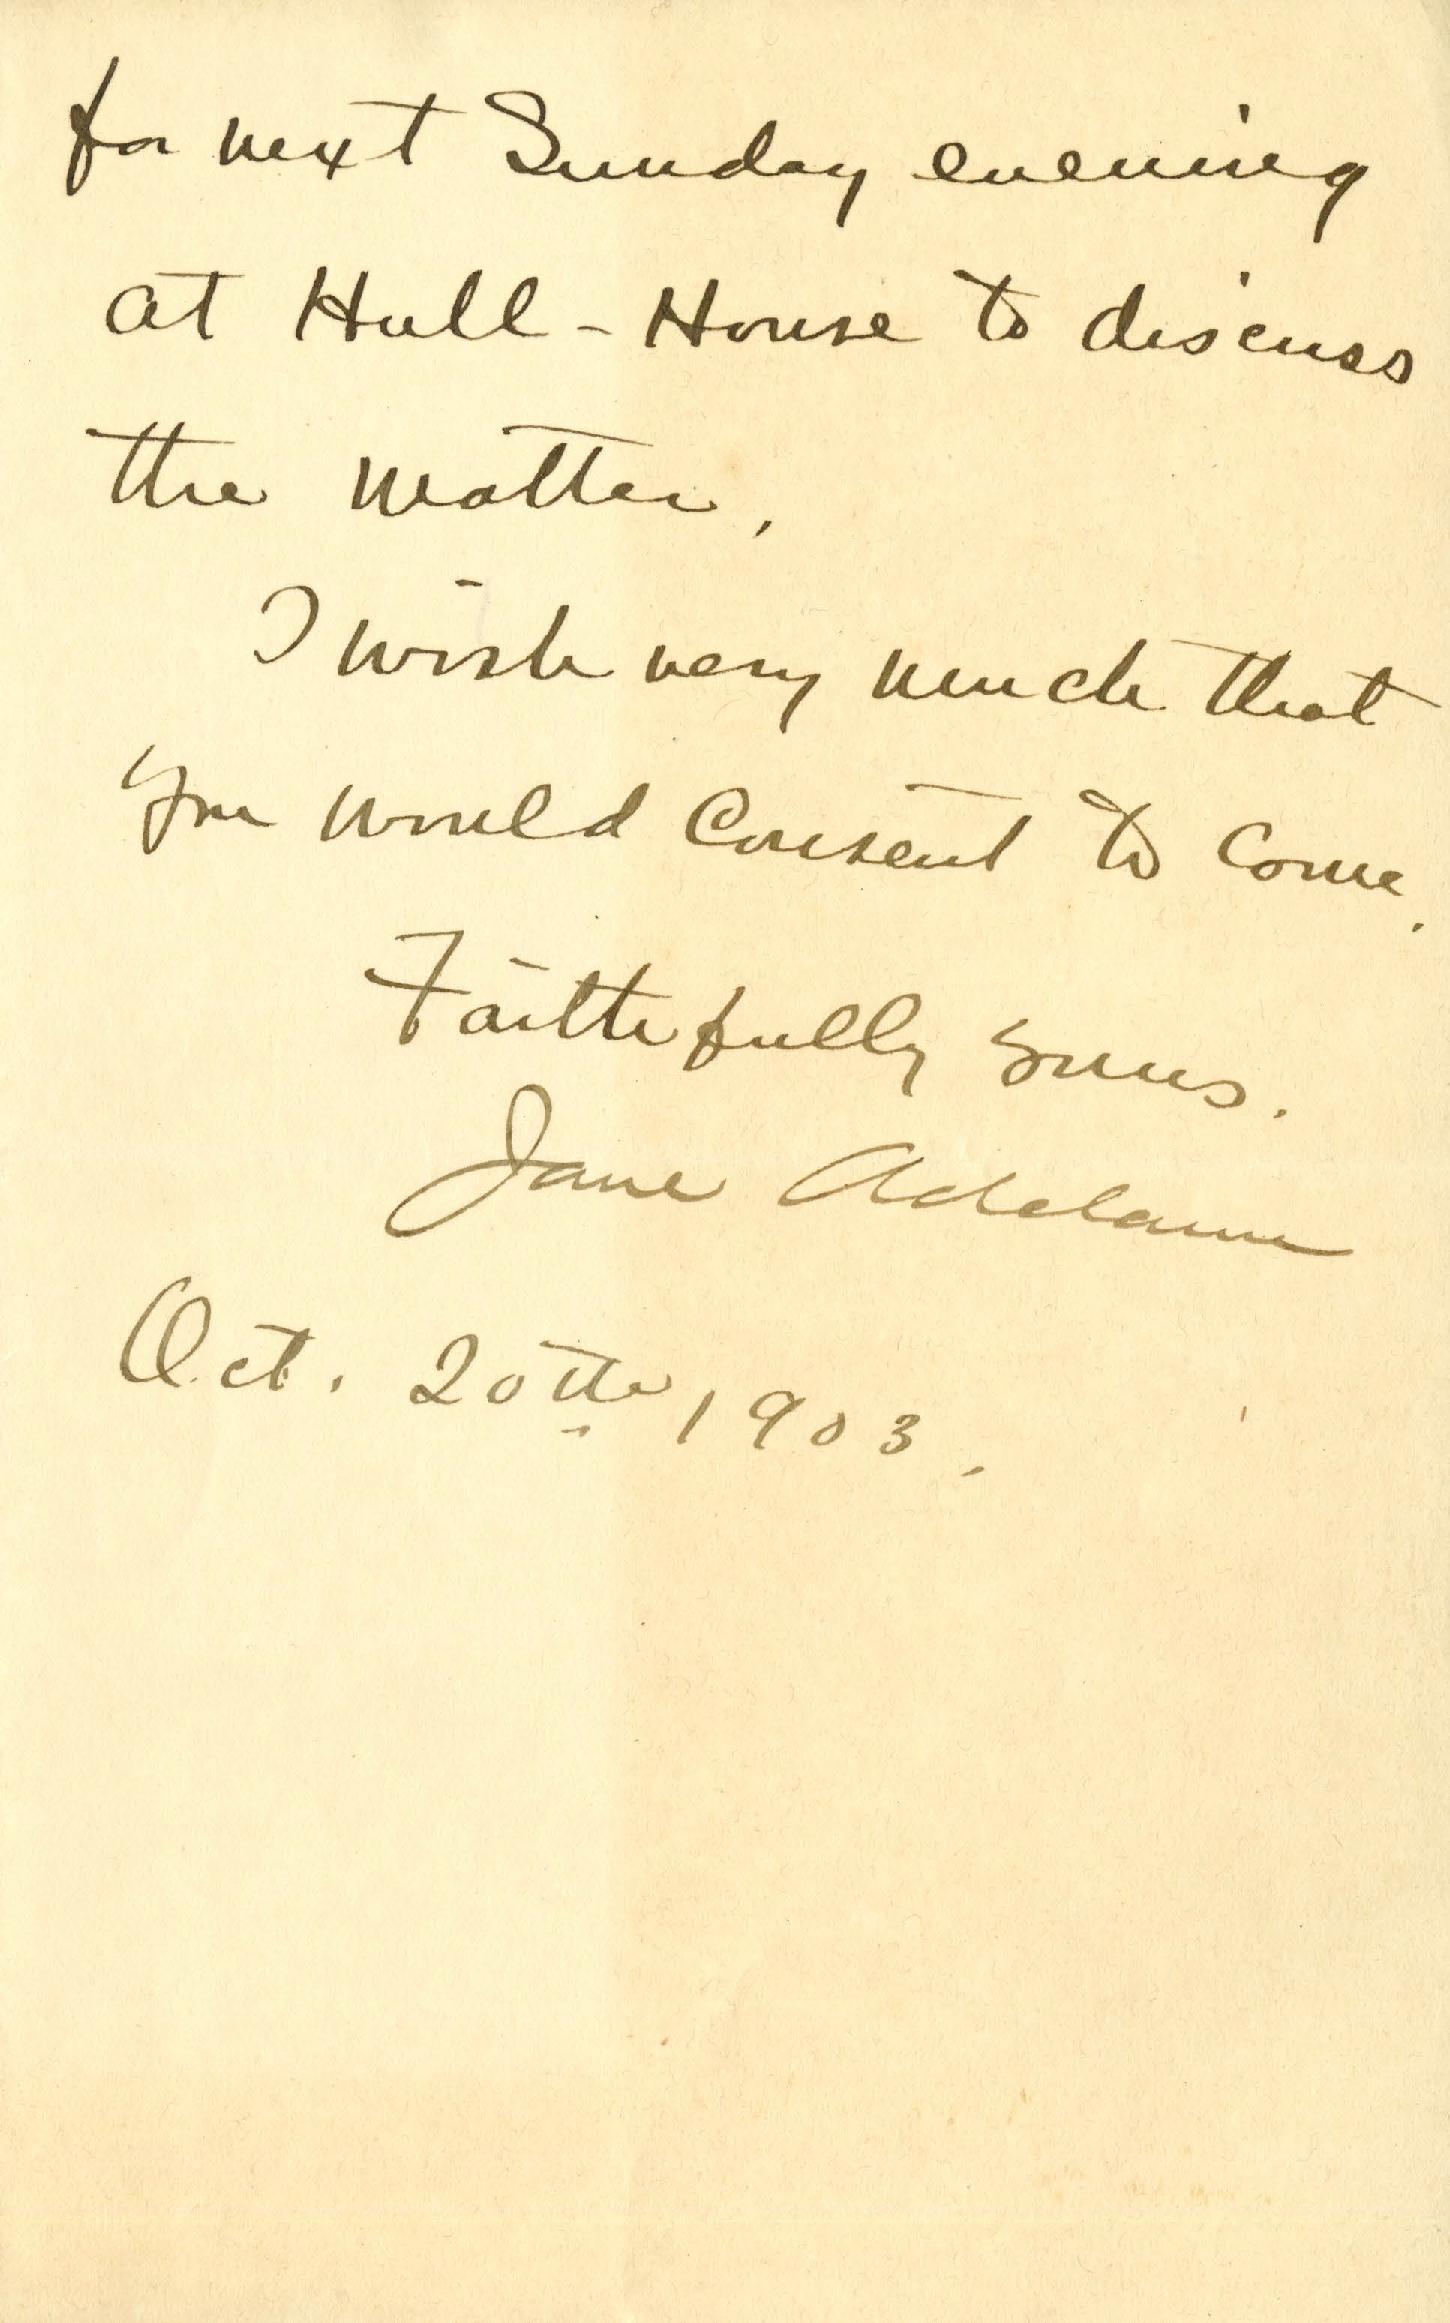 for next Sunday evening
at Hull-House to discuss
the matter.
I wish very much that
you would consent to come.
Faithfully yours.
Jane Addams
Oct. 20th 1903.